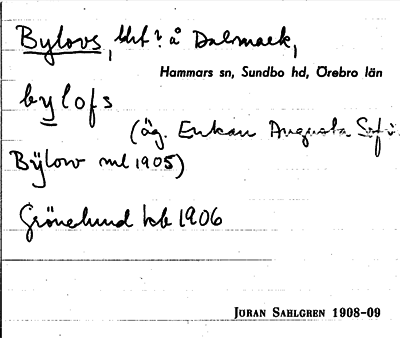 Bylovs, hht? å Dalmark,
Hammars sn, Sundbo hd, Örebro län
bylofs
(äg. Enkan Augusta Sofi
Bÿlow ml 1905)
Grönelund kb 1906
JÖRAN SAHLGREN 1908-09